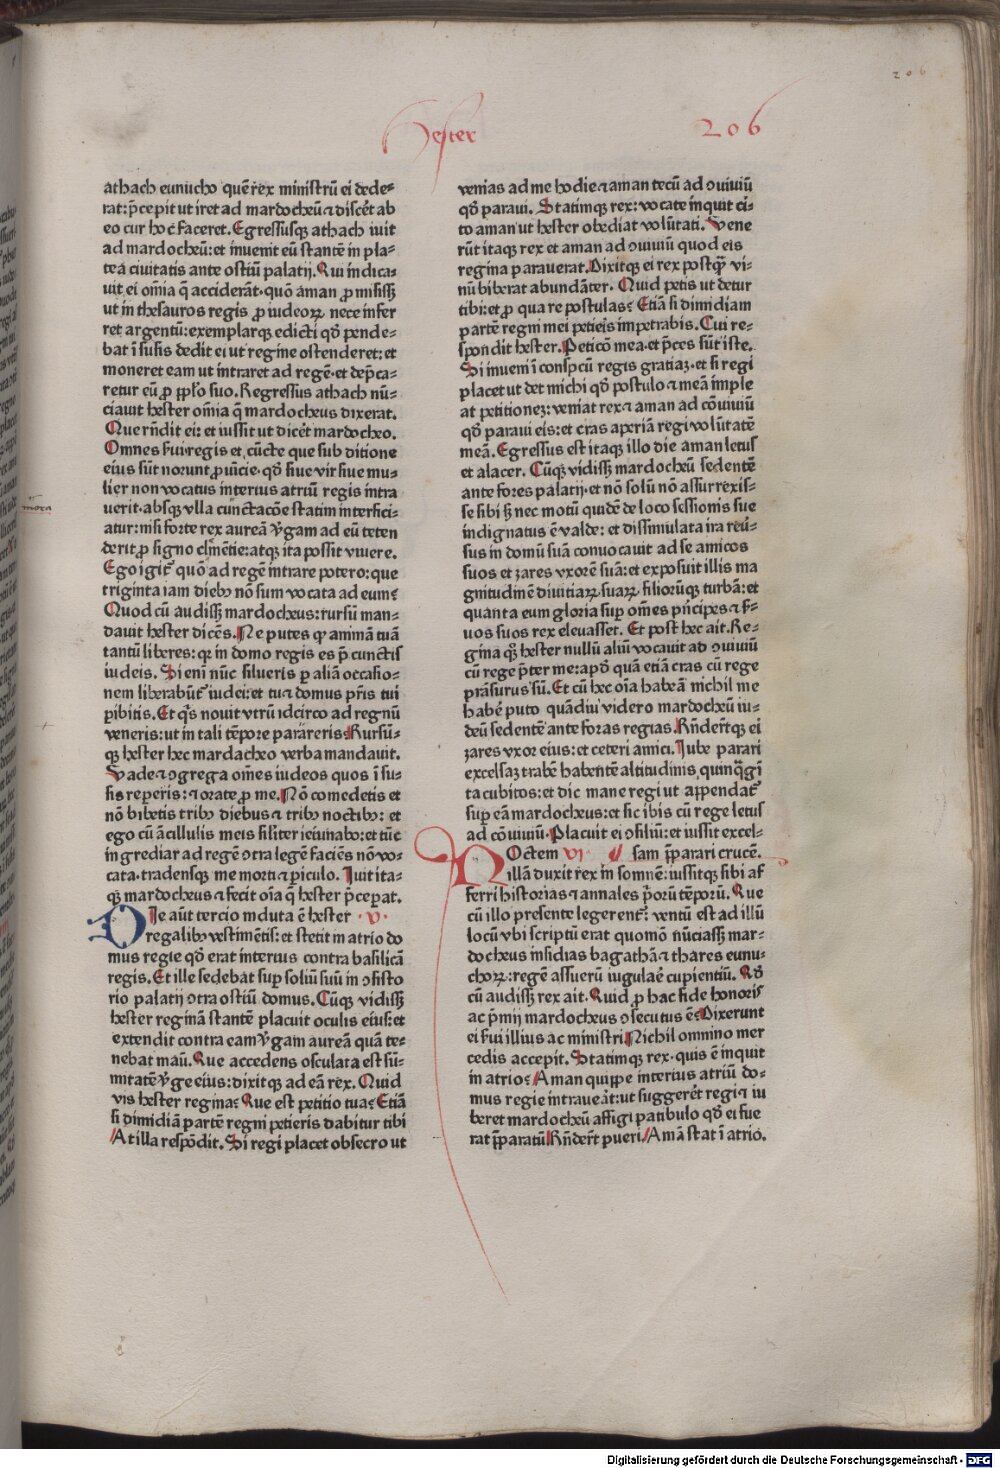 206
Hester 206
athach eunucho quē rex ministrū ei dede⸗
rat: p̄cepit ut iret ad mardocheū ⁊ discēt ab
eo cur hoc faceret. Egressusqꝫ athach iuit
ad mardocheū: et inuenit eū stantē in pla⸗
tea ciuitatis ante ostiū palatij. Qui indica⸗
uit ei om̄ia q̄ acciderāt· quō aman ꝓmisissꝫ
ut in thesauros regis ꝓ iudeoꝝ nece infer
ret argentū: exemplarqꝫ edicti qd̄ pende⸗
bat ī susis dedit ei ut regine ostenderet: et
moneret eam ut intraret ad regē· et dep̄ca⸗
retur eū ꝓ ppl̄o suo. Regressus athach nū⸗
ciauit hester om̄ia q̄ mardocheus dixerat.
Que rn̄dit ei: et iussit ut dicēt mardocheo.
Omnes ẜui regis et, cūcte que sub ditione
eius sūt norunt ꝓuīcie· qd̄ siue vir siue mu⸗
lier non vocatus interius atriū regis intra
uerit· absqꝫ vlla cunctacōe statim interfici⸗
atur: nisi forte rex aureā v̄gam ad eū teten
derit ꝓ signo clem̄etie: atqꝫ ita possit viuere.
Ego igit̄ quō ad regē intrare potero: que
triginta iam diebꝰ nō sum vocata ad eum?
Quod cū audissꝫ mardocheus: rursū man⸗
dauit hester dicēs. Ne putes ꝙ animā tuā
tantū liberes: qꝛ in domo regis es p̄ cunctis
iudeis. Si eni nūc silueris ꝑ aliā occasio⸗
nem liberabūt̄ iudei: et tu ⁊ domus pr̄is tui
ꝑibitis. Et qͥs nouit vtrū idcirco ad regnū
veneris: ut in tali tēpore parareris? Rursū⸗
qꝫ hester hec mardacheo verba mandauit.
Vade ⁊ ꝯgrega om̄es iudeos quos ī su⸗
sis reperis: ⁊ orate ꝓ me. Nō comedetis et
nō bibetis tribꝰ diebus ⁊ tribꝰ noctibꝰ: et
ego cū ācillulis meis sil̄iter ieiunabo: et tūc
ingrediar ad regē ꝯtra legē faciēs nō vo⸗
cata· tradensqꝫ me morti ⁊ ꝑiculo. Iuit ita⸗
qꝫ mardocheus ⁊ fecit oīa q̄ hester p̄ceꝑat.
DIe aūt tercio induta ē hester · v·
regalibꝰ vestimētis: et stetit in atrio do
mus regie qd̄ erat interius contra basilicā
regis. Et ille sedebat suꝑ soliū suū in ꝯsisto
rio palatij ꝯtra ostiū domus. Cūqꝫ vidissꝫ
hester reginā stantē placuit oculis eius: et
extendit contra eam v̄gam aureā quā te⸗
nebat manū. Que accedens osculata est sū⸗
mitatē v̄ge eius: dixitqꝫ ad eā rex. Quid
vis hester regina? Que est petitio tua? Etiā
si dimidiā partē regni petieris dabitur tibi
At illa respōdit. Si regi placet obsecro ut
venias ad me hodie ⁊ aman tecū ad ꝯuiuiū
qd̄ paraui. Statimqꝫ rex: vocate inquit ci⸗
to aman ut hester obediat volūtati. Vene
rūt itaqꝫ rex et aman ad ꝯuiuiū quod eis
regina parauerat. Dixitqꝫ ei rex postqͣꝫ vi⸗
nū biberat abundāter. Quid petis ut detur
tibi: et ꝓ qua re postulas? Etiā si dimidiam
partē regni mei petieis impetrabis. Cui re⸗
spondit hester. Peticō mea· et p̄ces sūt iste.
Si inueni ī consp̄cū regis gratiaꝫ· et si regi
placet ut det michi qd̄ postulo ⁊ meā imple
at petitioneꝫ: veniat rex ⁊ aman ad cōuiuiū
qd̄ paraui eis: et cras aperiā regi volūtatē
meā. Egressus est itaqꝫ illo die aman letus
et alacer. Cūqꝫ vidissꝫ mardocheū sedentē
ante fores palatij· et nō solū nō assurrexis⸗
se sibi sꝫ nec motū quidē de loco sessionis sue
indignatus ē valde: et dissimulata ira reu̇⸗
sus in domū suā conuocauit ad se amicos
suos et zares vxorē suā: et exposuit illis ma
gnitudinē diuitiaꝝ suaꝝ· filiorūqꝫ turbā: et
quanta eum gloria suꝑ om̄es pn̄cipes ⁊ ẜ⸗
uos suos rex eleuasset. Et post hec ait. Re⸗
gina qꝫ hester nullū aliū vocauit ad ꝯuiuiū
cū rege p̄ter me: apd̄ quā etiā cras cū rege
prāsurus sū. Et cū hec oīa habeā nichil me
habē puto quādiu videro mardocheū iu⸗
deū sedentē ante foras regias. Rn̄der̄tqꝫ ei
zares vxor eius: et ceteri amici. Iube parari
excelsaꝫ trabē habentē altitudinis quinq̄gī
ta cubitos: et dic mane regi ut appendat̄
suꝑ eā mardocheus: et sic ibis cū rege letus
ad cōuiuiū. Placuit ei ꝯsiliū: et iussit excel⸗
NOctem vi· ¶ sam p̄parari crucē.
illā duxit rex in somnē: iussitqꝫ sibi af
ferri historias ⁊ annales p̄orū tēporū. Que
cū illo presente legerent̄: ventū est ad illū
locū vbi scriptū erat quomō nūciassꝫ mar⸗
docheus insidias bagathā ⁊ thares eunu⸗
choꝝ: regē assuerū iugulare cupientiū. Qd̄
cū audissꝫ rex ait. Quid ꝓ hac fide honoris
ac p̄mij mardocheus ꝯsecutus ē? Dixerunt
ei ẜui illius ac ministri. Nichil omnino mer
cedis accepit. Statimqꝫ rex· quis ē inquit
in atrio? Aman quippe interius atriū do⸗
mus regie intrauerat: ut suggerēt regi ⁊ iu
beret mardocheū affigi patibulo qd̄ ei fue
rat p̄paratū. Rn̄der̄t pueri. Amā stat ī atrio.
mora
Digitalisierung gefördert durch die Deutsche Forschungsgemeinschaft - DFG